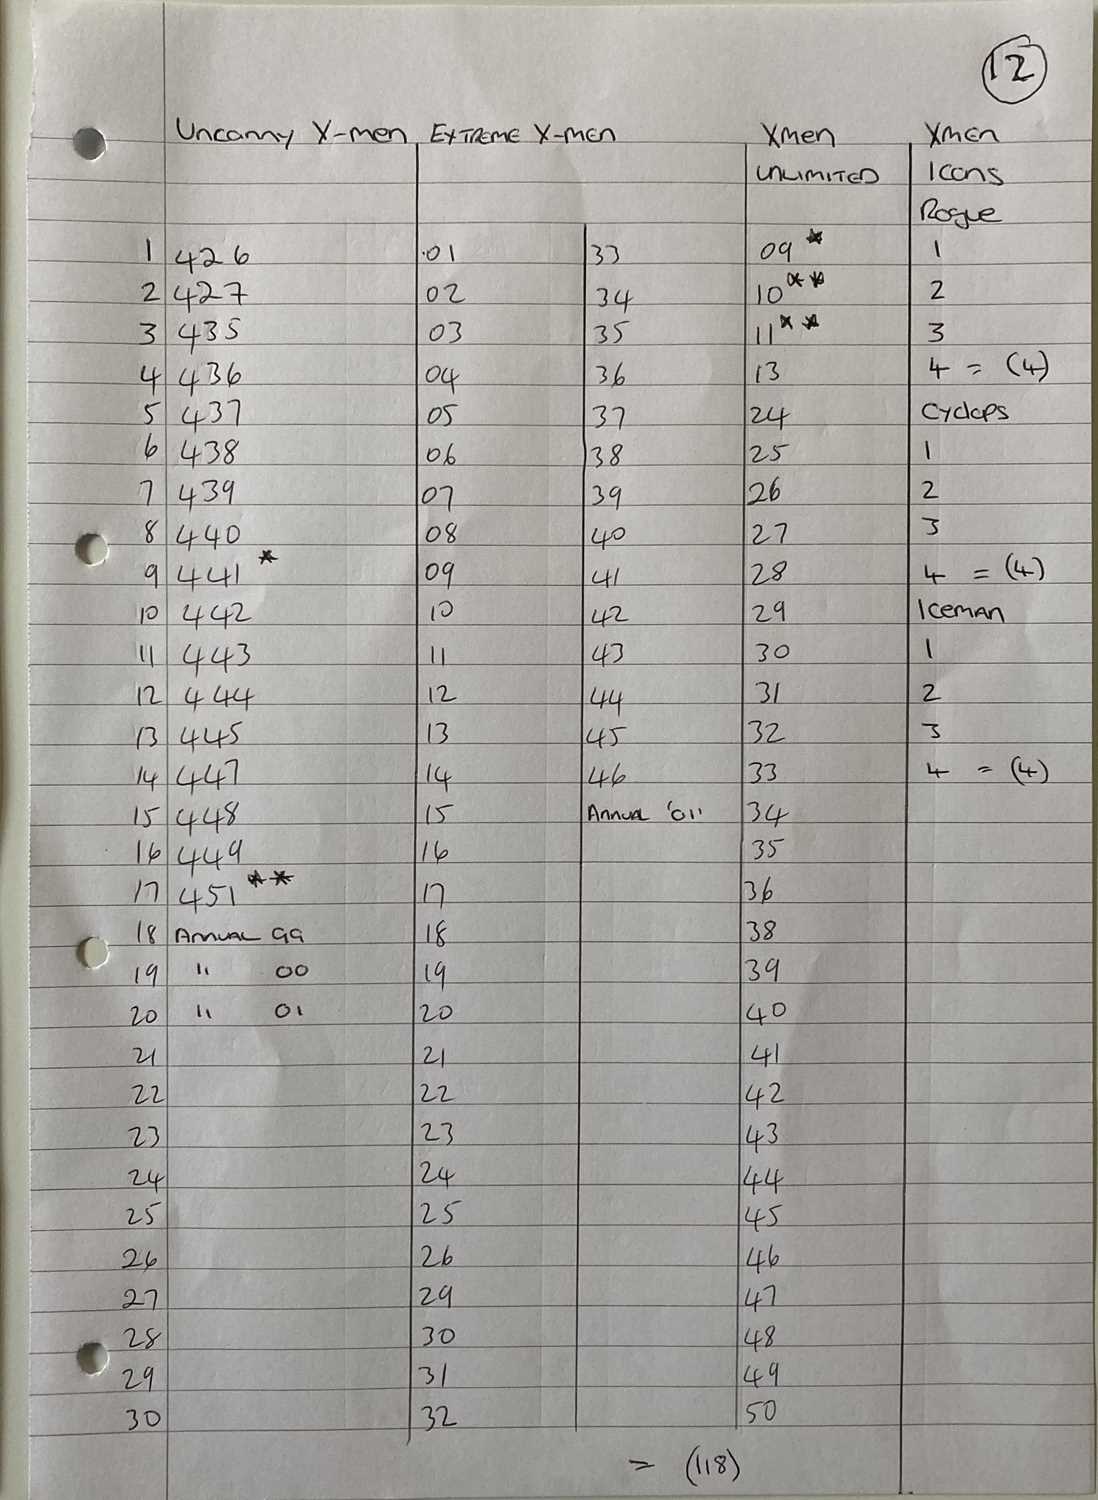 12
Uncanny X-men EXTREME X-men Xmen Xmen
UNLIMITED Icons
Rogue
1 426 01 33 09* 1
2 427 02 34 10** 2
3 435 03 35 11** 3
4 436 04 36 13 4 = (4)
5 437 05 37 24 Cyclops
6 438 06 38 25 1
7 439 07 39 26 2
8 440 08 40 27 3
9 441* 09 41 28 4 = (4)
10 442 10 42 29 Iceman
11 443 11 43 30 1
12 444 12 44 31 2
13 445 13 45 32 3
14 447 14 46 33 4 = (4)
15 448 15 Annual '01' 34
16 449 16 35
17 451** 17 36
18 Annual 99 18 38
19 " 00 19 39
20 " 01 20 40
21 21 41
22 22 42
23 23 43
24 24 44
25 25 45
26 26 46
27 29 47
28 30 48
29 31 49
30 32 50
= (118)